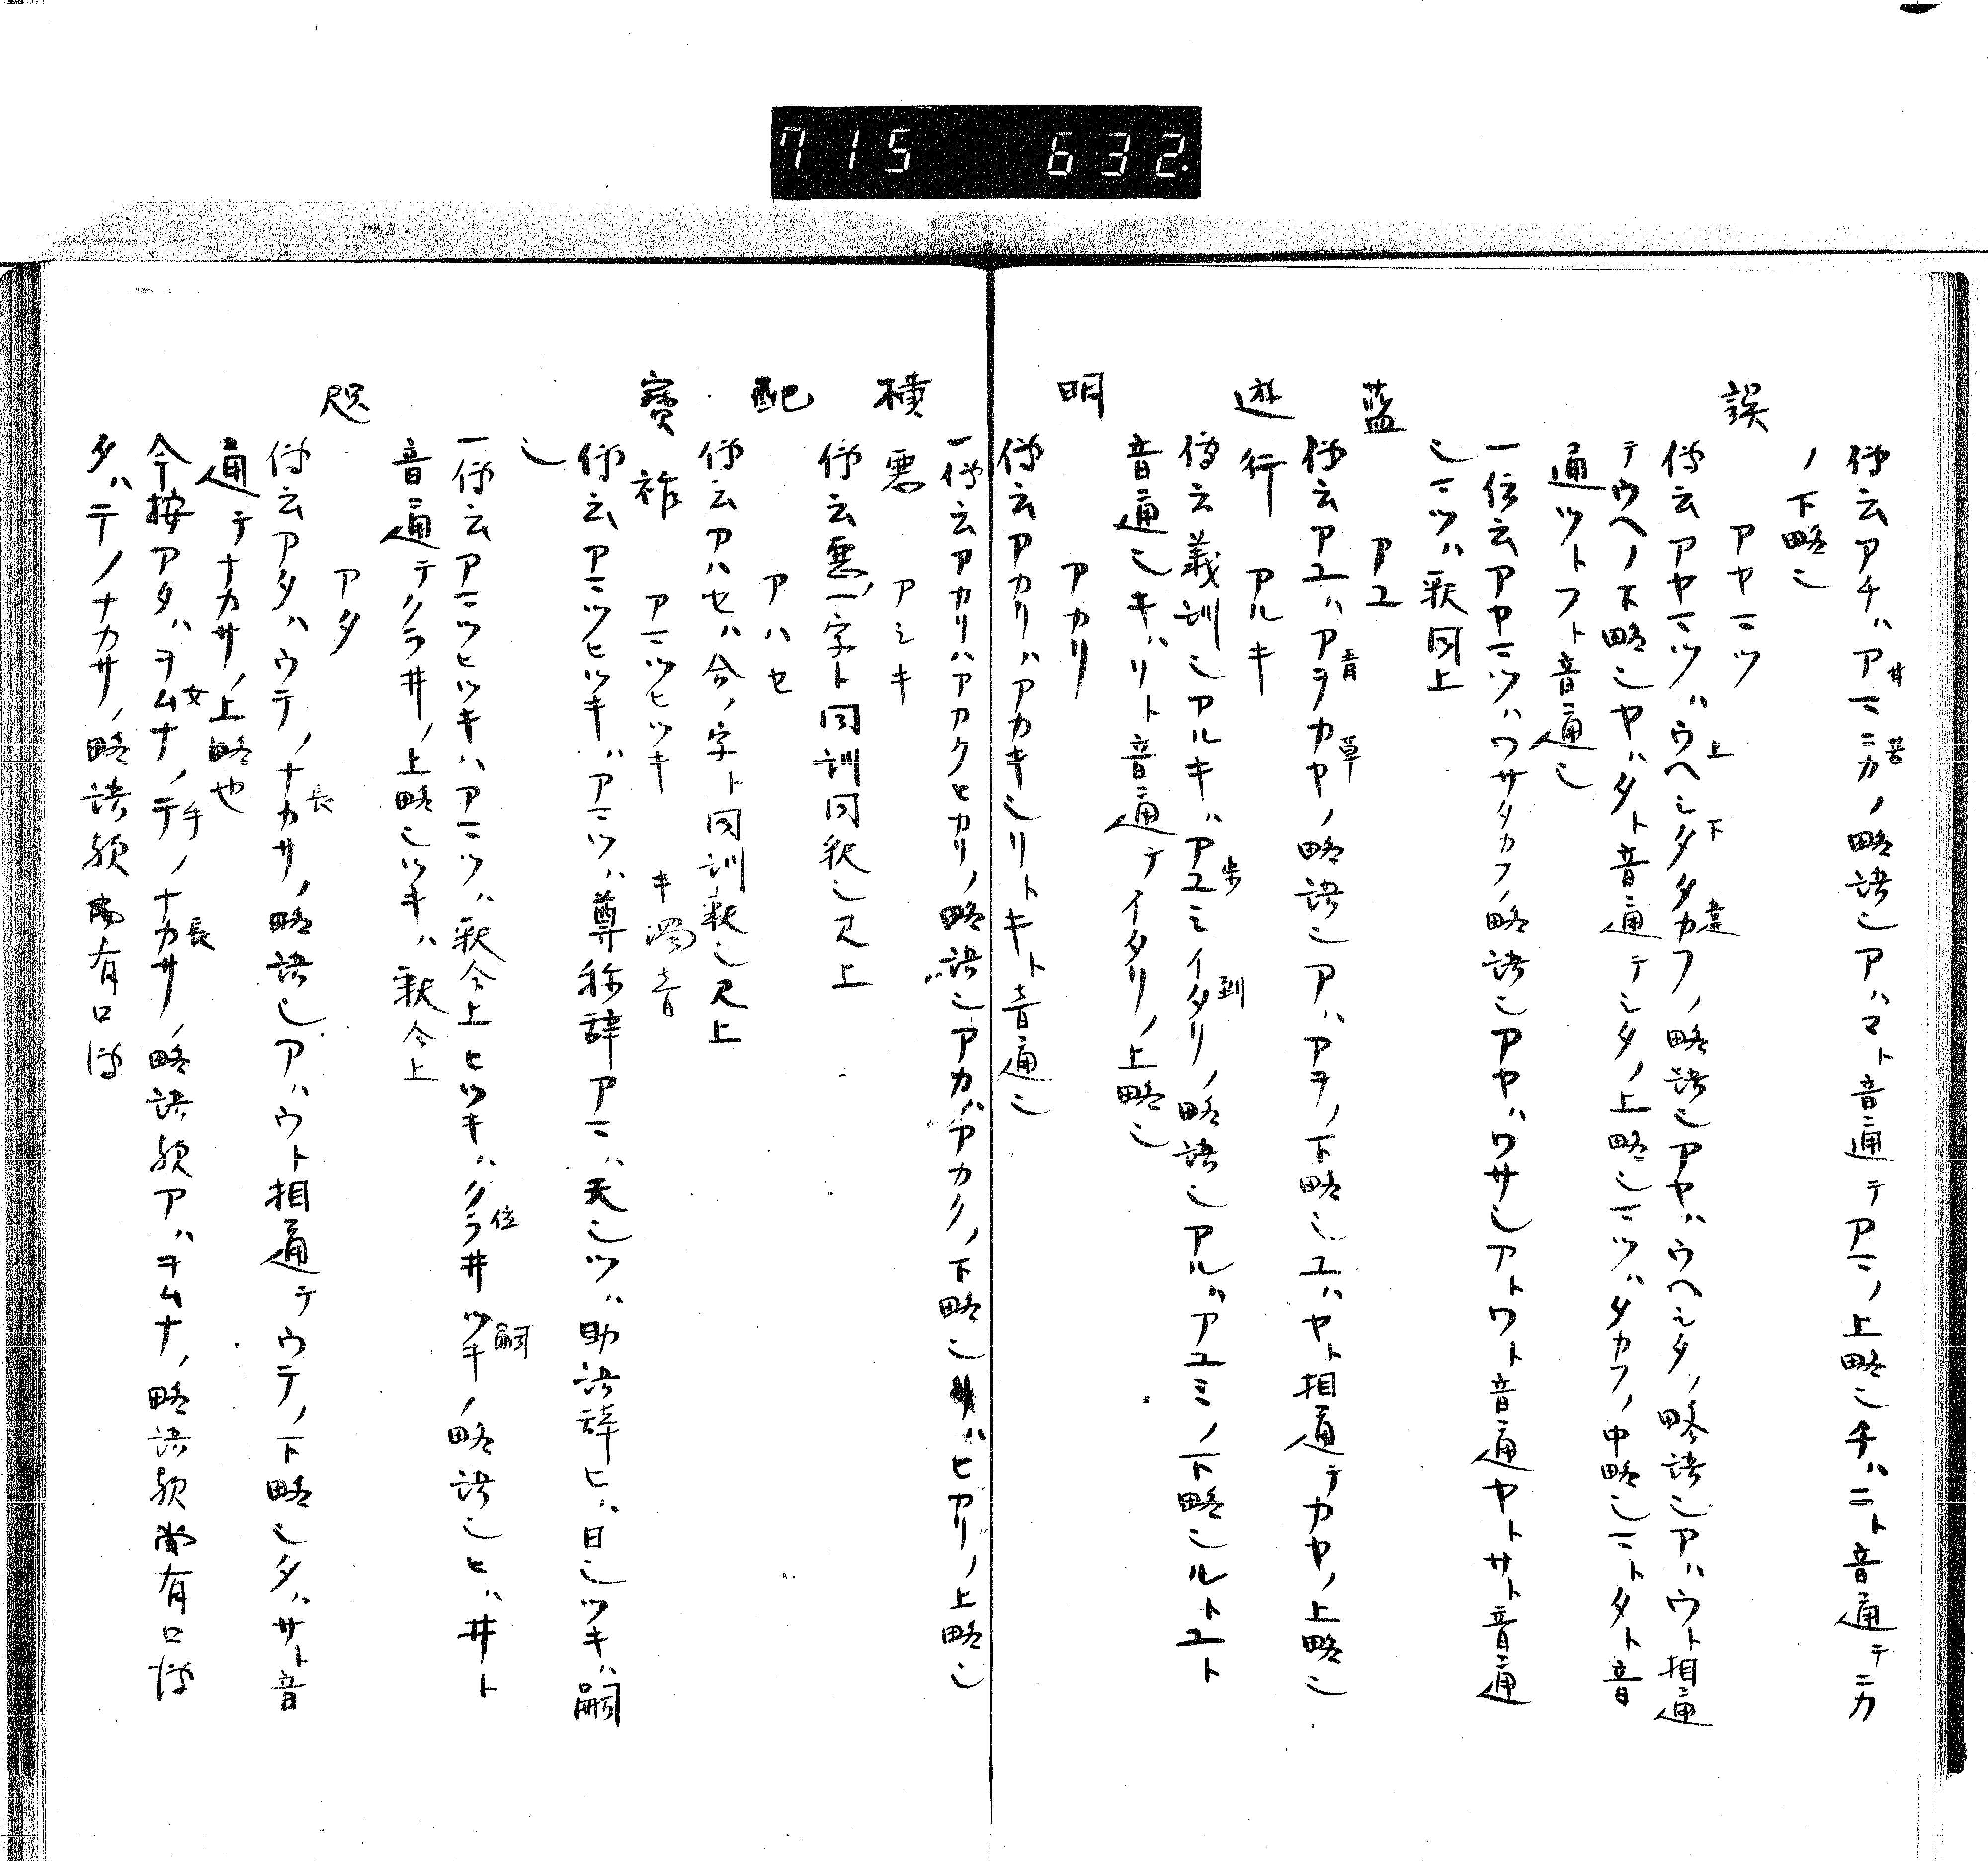 715 632.
伝云アチハアマニカノ略語也アハマト音通テアマノ上略也チハニト音通テニカ
ノ下略也
誤 アヤマツ
伝云アヤマツハウヘシタタカフノ略語也アヤハウヘシタノ略語也アハウト相通
テウヘノ下略也ヤハタト音通テシタノ上略也マツハタカフノ中略也マトタト音
通ツトフト音通也
一伝云アヤマツハワサタカフノ略語也アヤハワサ也アトワト音通ヤトサト音通
也マツハ釈同上
藍 アユ
伝云アユハアヲカヤノ略語也アハアヲノ下略也ユハヤト相通テカヤノ上略也
遊行 アルキ
伝云義訓也アルキハアユミイタリノ略語也アルハアユミノ下略也ルトユト
音通也キハリト音通テイタリノ上略也
明 アカリ
伝云アカリハアカキ也リトキト音通也
一伝云アカリハアカクヒカリノ略語也アカハアカクノ下略也リハヒカリノ上略也
横悪 アシキ
伝云悪ノ一字ト同訓同釈也見上
配 アハセ
伝云アハセハ合ノ字ト同訓釈也見上
宝祚 アマツヒツキ キ濁音
伝云アマツヒツキハアマツハ尊称辞アマハ天也ツハ助語辞ヒハ日也ツキハ嗣
也
一伝云アマツヒツキハアマツハ釈今上ヒツキハクラ井ツキノ略語也ヒハ井ト
音通テクラ井ノ上略也ツキハ釈今上
咫 アタ
伝云アタハウテノナカサノ略語也アハウト相通テウテノ下略也タハサト音
通テナカサノ上略也
今按アタハヲムナノテノナカサノ略語歟アハヲムナノ略語歟尚有口伝
タハテノナカサノ略語歟尚有口伝